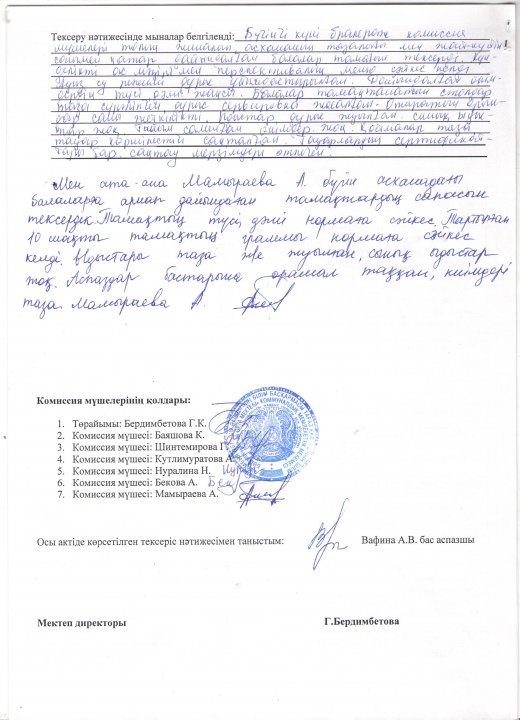 Тексеру нәтижесінде мыналар белгіленді: Бүгінгі күні бракераж комиссия
мүшелері толық жиналып, асхананың тазалығы мен жай-күйін
сонымен қатар дайындалған балалар тамағын тексерді. Күн-
делікті ас мәзірі мен перспективалық меню сәйкес келеді.
Ауыз су режимі дұрыс ұйымдастырылған. Дайындалған өнім-
дердің түсі дәмі жақсы. Балалар тамақтанатын столдар
таза сүртілген, дұрыс сервировка жасалған. Отыратын орын-
дар саны жеткілікті. Ыдыстар дұрыс жуылған. сынық ыдыс-
тар жоқ. қоймалар таза
тауар көршілестігі сақталған. Тауарлардың сертификат-
тары бар. сақтау мерзімдері өтпеген.
Мен ата-ана Мамыраева А. бүгін асханадағы
балаларға арнап дайындаған тамақтардың сапасын
тексердік. Тамақтың түсі, дәмі нормаға сәйкес. Тартылған
10 шақты тамақтың граммы нормаға сәйкес
келді. Ыдыстары таза және жуылған, сынық ыдыстар
жоқ. Аспаздар бастарына орамал таққан, киімдері
таза. Мамыраева А.
Комиссия мүшелерінің қолдары:
1. Төрайымы: Бердимбетова Г.К.
2. Комиссия мүшесі: Баяшова К.
3. Комиссия мүшесі: Шинтемирова Г.
4. Комиссия мүшесі: Кутлимуратова А.
5. Комиссия мүшесі: Нуралина Н.
6. Комиссия мүшесі: Бекова А.
7. Комиссия мүшесі: Мамыраева А.
Осы актіде көрсетілген тексеріс нәтижесімен таныстым: Вафина А.В. бас аспазшы
Мектеп директоры Г.Бердимбетова